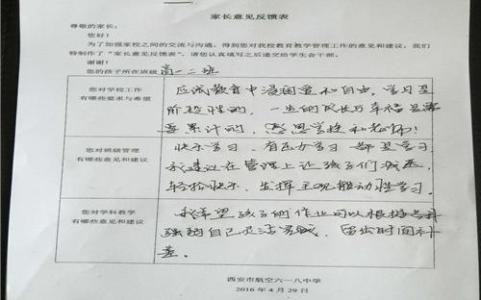 家长意见反馈表
尊敬的家长：
您好！
为了加强家校之间的交流与沟通，得到您对我校教育教学管理工作的意见和建议，我们
特制作了“家长意见反馈表”，请您认真填写之后递交给学生会干部。
谢谢！
您的孩子所在班级 高一二班
您对学校工作
有哪些要求与希望
应试教育中渴望着和自由，学习是
阶段性的，一生的成长幸福是需
要累计的，感恩学校和老师！
您对班级管理
有哪些意见和建议
快乐学习，有压力学习 都是学习
我建议在管理上让孩子们减压，
轻松快乐，发挥主观能动性学习。
您对学科教学
有哪些意见和建议
我希望孩子的作业可以根据
强弱自己灵活完成，留出时间补
差。
西安市航空六一八中学
2016 年 4 月 29 日